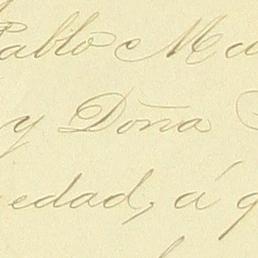 Pablo M
y Doña
edad, á